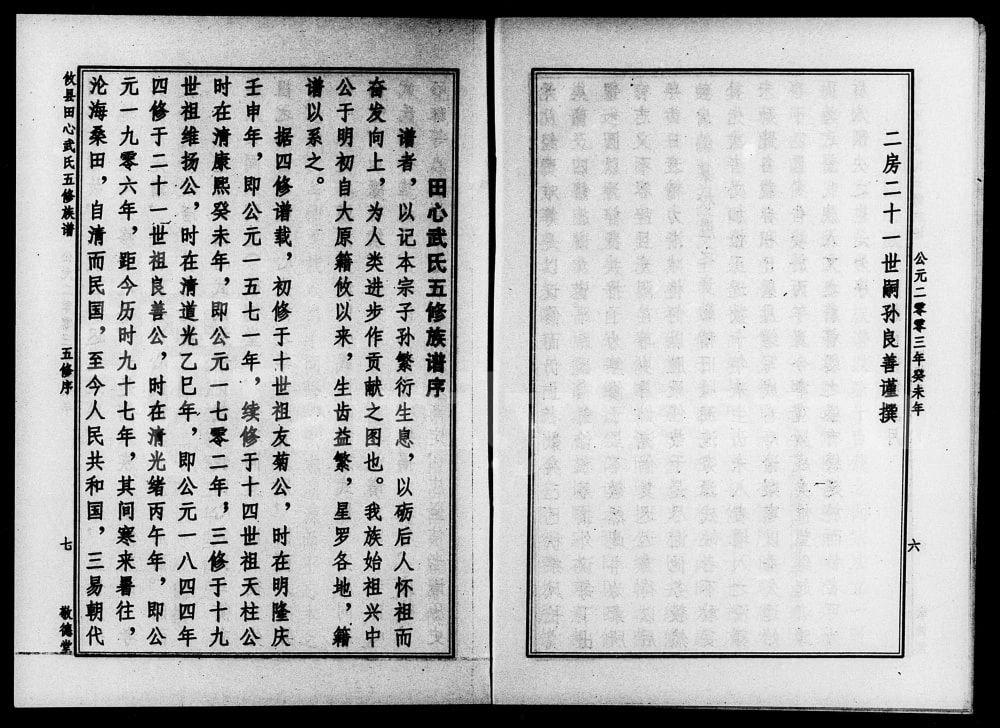 公元二零零三年癸未年
六
二房二十一世嗣孙良善谨撰
田心武氏五修族谱序
谱者，以记本宗子孙繁衍生息，以砺后人怀祖而
奋发向上，为人类进步作贡献之图也。我族始祖兴中
公于明初自大原籍攸以来，生齿益繁，星罗各地，籍
谱以系之。
据四修谱载，初修于十世祖友菊公，时在明隆庆
壬申年，即公元一五七一年，续修于十四世祖天柱公
时在清康熙癸未年，即公元一七零二年，三修于十九
世祖维扬公，时在清道光乙巳年，即公元一八四四年
四修于二十一世祖良善公，时在清光绪丙午年，即公
元一九零六年，距今历时九十七年，其间寒来暑往，
沧海桑田，自清而民国，至今人民共和国，三易朝代
攸县田心武氏五修族谱
五修序
七
敬德堂